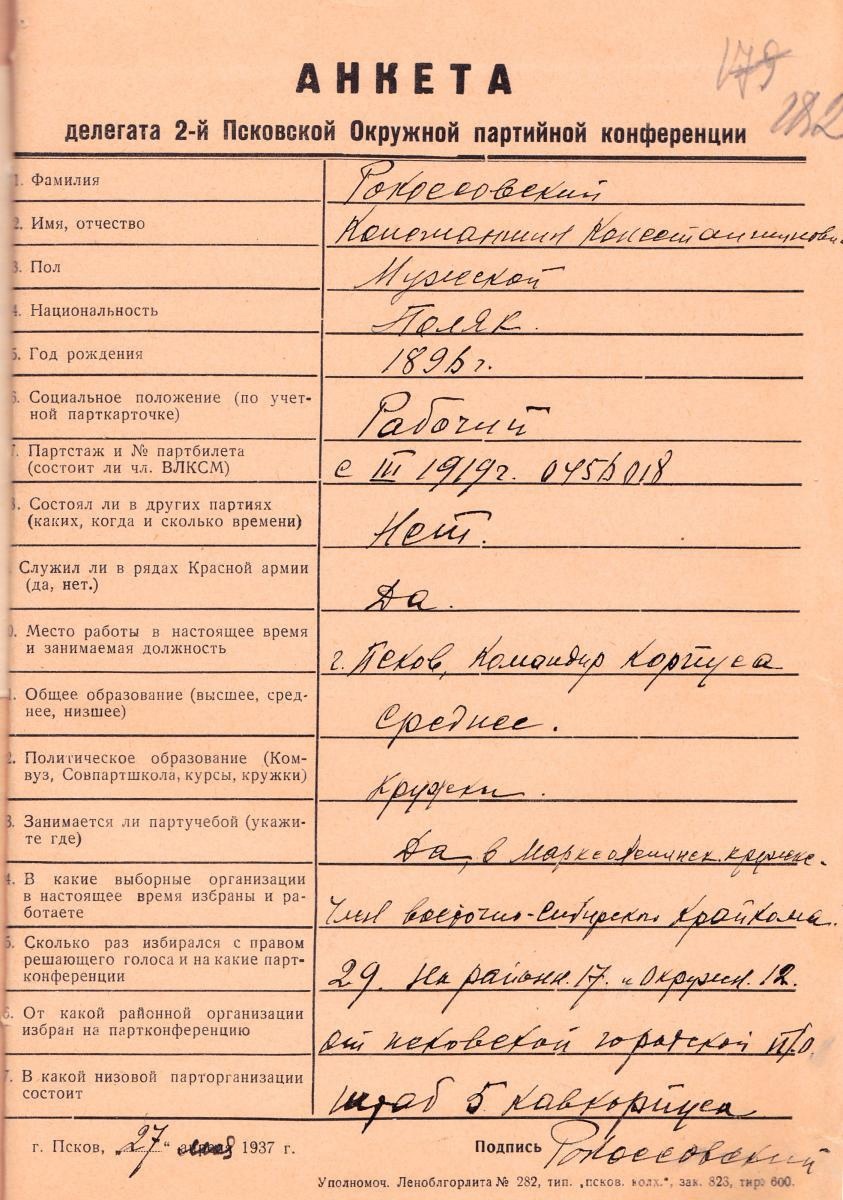 179
282
АНКЕТА
делегата 2-й Псковской Окружной партийной конференции
1. Фамилия
Рокоссовский
2. Имя, отчество
Константин Константинович
3. Пол
Мужской
4. Национальность
Поляк.
5. Год рождения
1896 г.
6. Социальное положение (по учет-
ной парткарточке)
Рабочий
7. Партстаж и № партбилета
(состоит ли чл. ВЛКСМ)
с III 1919 г. 0456018
8. Состоял ли в других партиях
(каких, когда и сколько времени)
Нет.
Служил ли в рядах Красной армии
(да, нет.)
Да.
0. Место работы в настоящее время
и занимаемая должность
г. Псков, Командир корпуса
1. Общее образование (высшее, сред-
нее, низшее)
Среднее.
2. Политическое образование (Ком-
вуз, Совпартшкола, курсы, кружки)
Кружки.
3. Занимается ли партучебой (укажи-
те где)
Да, в Марксо Ленинск. кружке.
4. В какие выборные организации
в настоящее время избраны и ра-
ботаете
Член Восточно-Сибирского Крайкома.
5. Сколько раз избирался с правом
решающего голоса и на какие парт-
конференции
29. На районн. 17. и Окружн. 12.
6. От какой районной организации
избран на партконференцию
От псковской городской п/о.
7. В какой низовой парторганизации
состоит
Штаб 5 кавкорпуса
г. Псков, „27“ мая 1937 г.
Подпись Рокоссовский
Уполномоч. Леноблгорлита № 282, тип. „псков. колх.“, зак. 823, тир. 600.